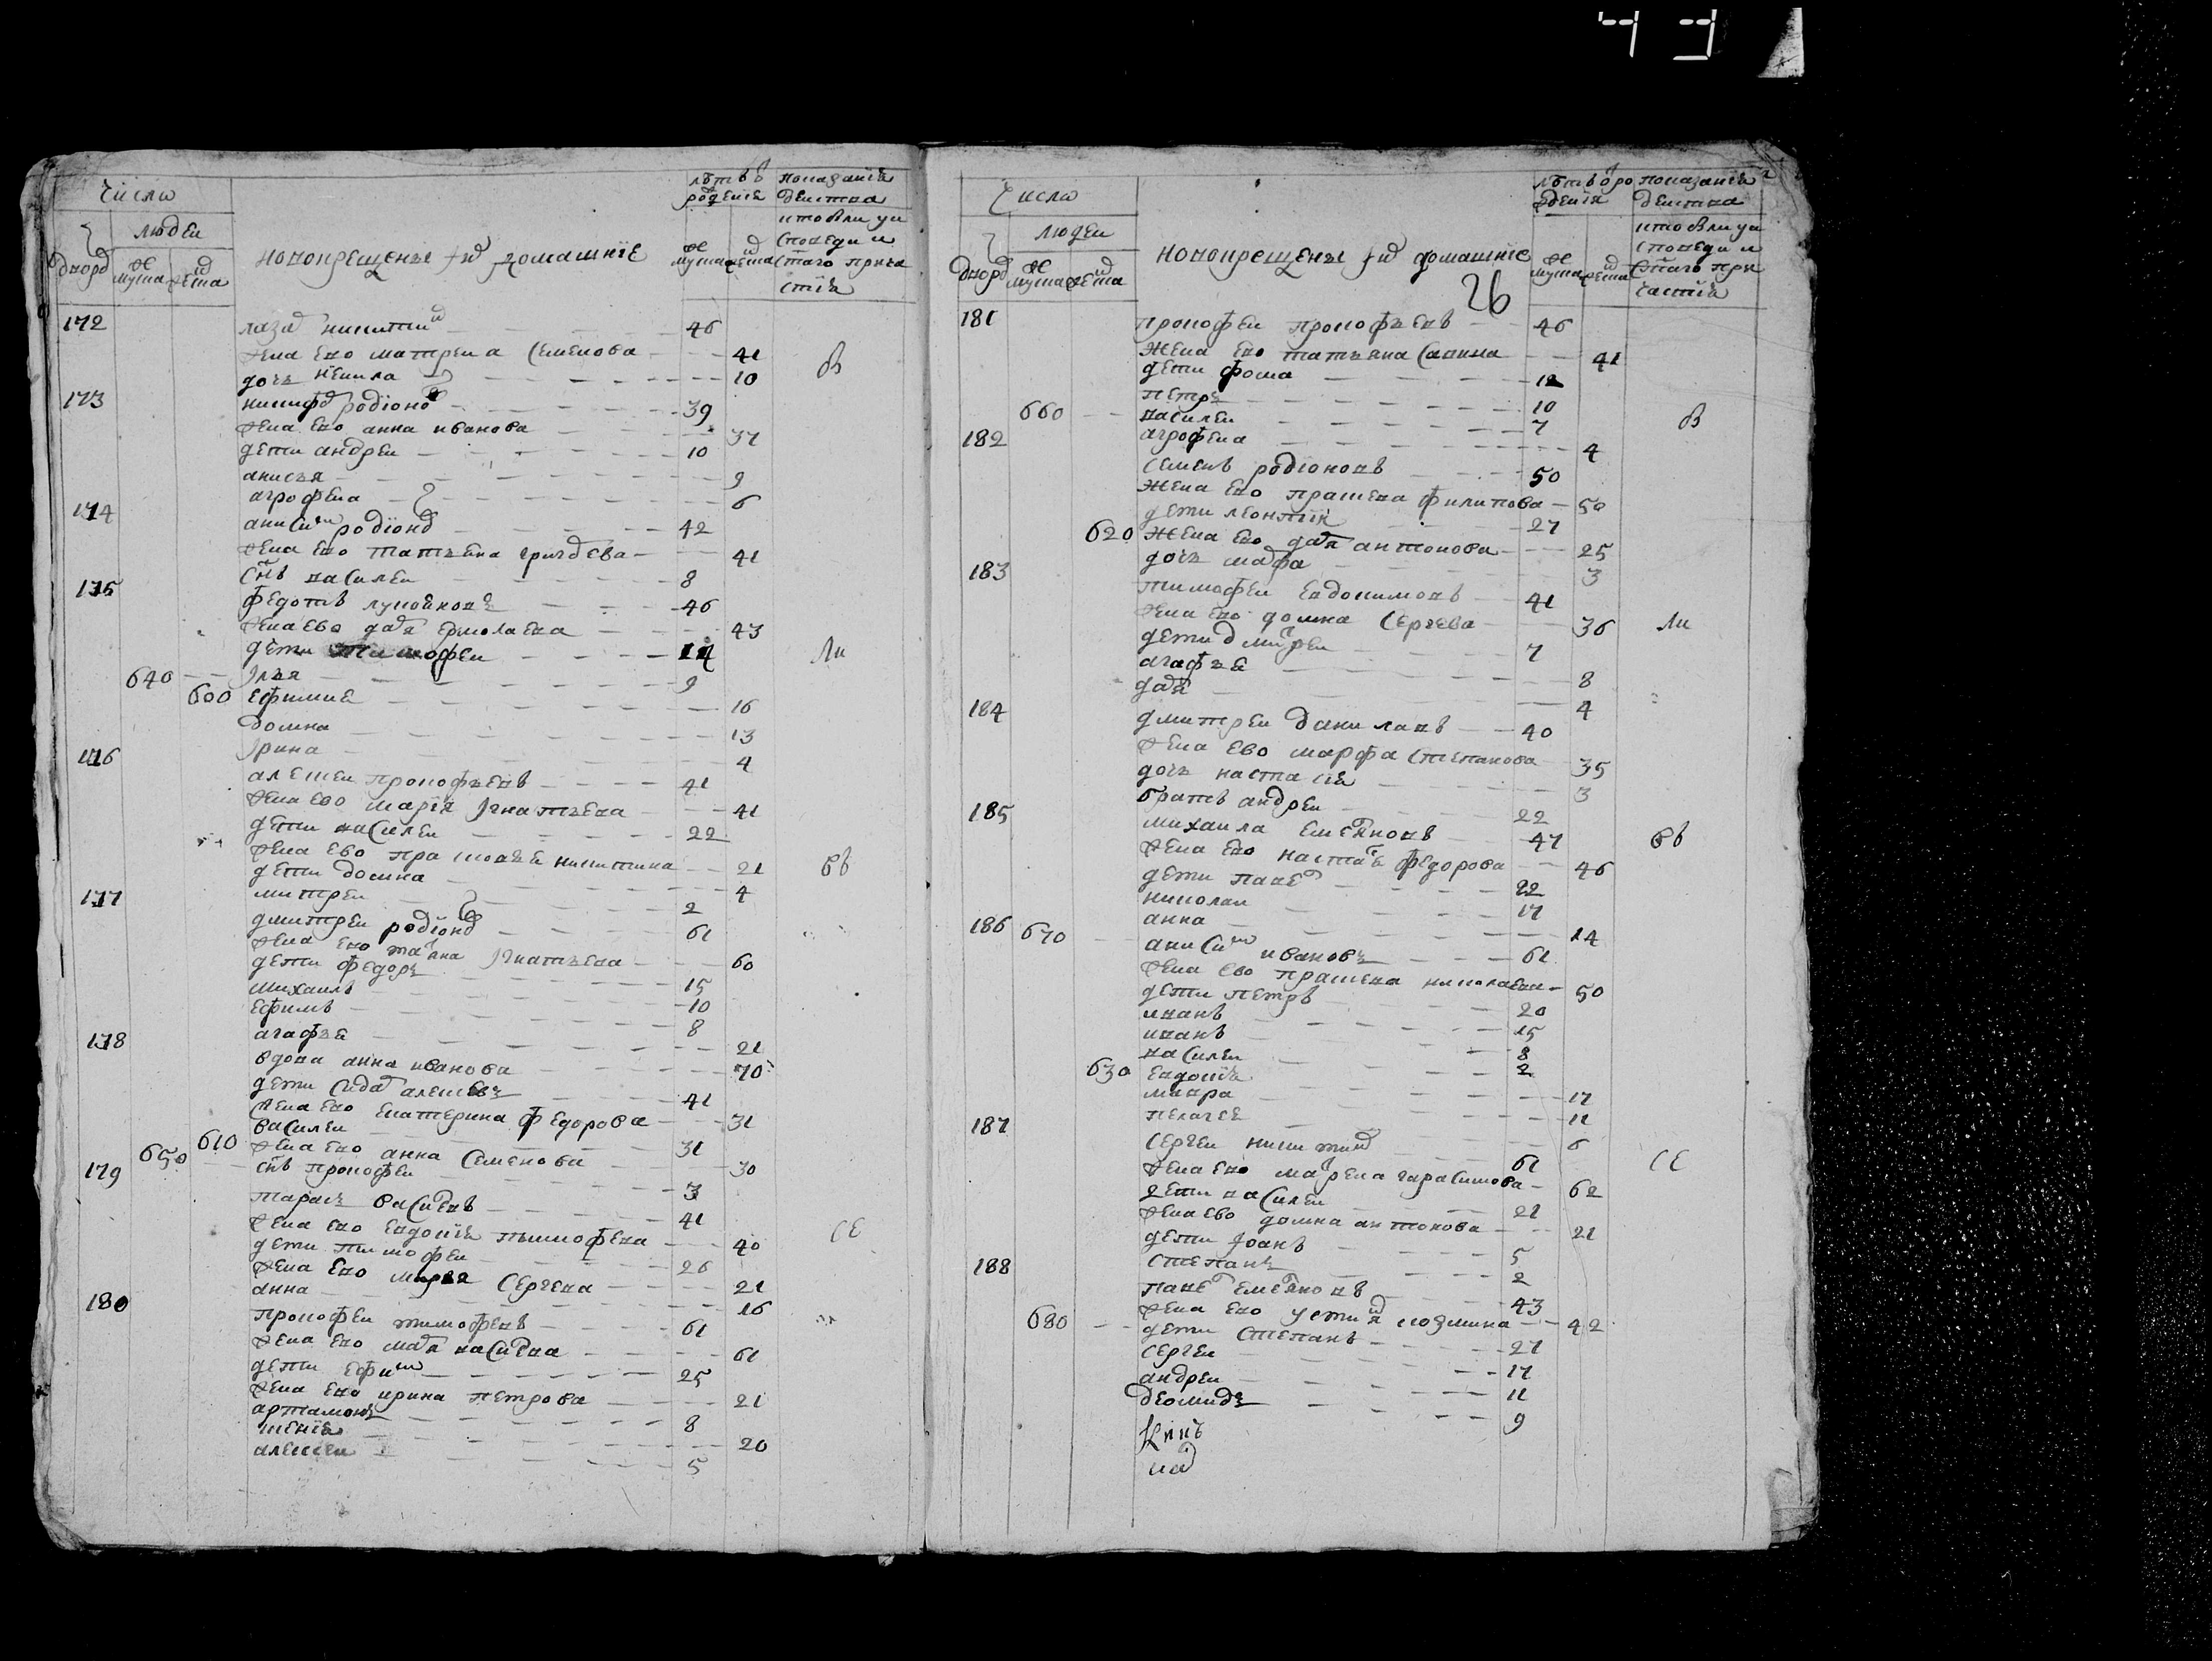 43
Число
дворъ
людеи
мужеска
женска
новокрещены и ихъ домашние
лѣтъ в рождения
мужеска
женска
показания действа
кто был у исповеди и святаго причастия
172
лазар никитин 46
жена ево матрена семенова 41
дочь ненила 10
в
173
никифор родионов 39
жена ево анна иванова 37
дети андреи 10
анисья 9
агрофена 6
174
анисим родионов 42
жена ево татьяна григорева 41
снъ василеи 8
175
федотъ лукоянов 46
жена ево даря ермолаева 43
дети тимофеи 12
640 илья 9
600 ефимия 16
домна 13
ирина 4
ли
176
алексеи прокофьевъ 41
жена ево мария игнатьева 41
дети василеи 22
жена ево прасковья никитина 21
дети домна 4
митреи 2
бв
177
дмитреи родионов 61
жена ево татяна игнатьева 60
дети федоръ 15
михаилъ 10
ефимъ 8
агафья 21
178
вдова анна иванова 70
дети сидор алексеевъ 41
жена ево екатерина федорова 31
василеи 31
610 жена ево анна семенова 30
650 снъ прокофеи 3
179
тарасъ василевъ 41
жена ево евдокия тимофеева 40
дети тимофеи 26
жена ево марья сергеева 21
анна 16
се
180
прокофеи тимофеевъ 61
жена ево маря василева 61
дети ефим 25
жена ево ирина петрова 21
артамонъ 8
ксения 20
алексеи 5
Число
дворъ
людеи
мужеска
женска
новокрещены и ихъ домашние
26
лѣтъ в рождения
мужеска
женска
показания действа
кто был у исповеди и святаго причастия
181
прокофеи прокофьевъ 46
жена ево татьяна савина 41
дети фома 12
петръ 10
660 василеи 7
агрофена 4
в
182
семенъ родионовъ 50
жена ево прасковя филипова 50
дети леонтии 27
620 жена ево даря антонова 25
дочь марфа 3
183
тимофеи евдокимовъ 41
жена ево домна сергева 36
дети дмитреи 7
агафья 8
даря 4
ли
184
дмитреи даниловъ 40
жена ево марфа степанова 35
дочь настасия 3
братъ андреи 22
185
михаила емеляновъ 47
жена ево настася федорова 46
дети павел 22
николаи 17
анна 14
бв
186
670 анисим ивановъ 61
жена ево прасковя николаева 50
дети петръ 20
иванъ 15
иванъ 8
василеи 2
630 евдокия 17
мавра 11
пелагея 6
187
сергеи никитин 61
жена ево матрена гарасимова 62
дети василеи 21
жена ево домна антонова 21
дети иоанъ 5
степанъ 2
се
188
павел емеляновъ 43
жена ево устиня козмина 42
680 дети степанъ 27
сергеи 17
андреи 11
деомидъ 9